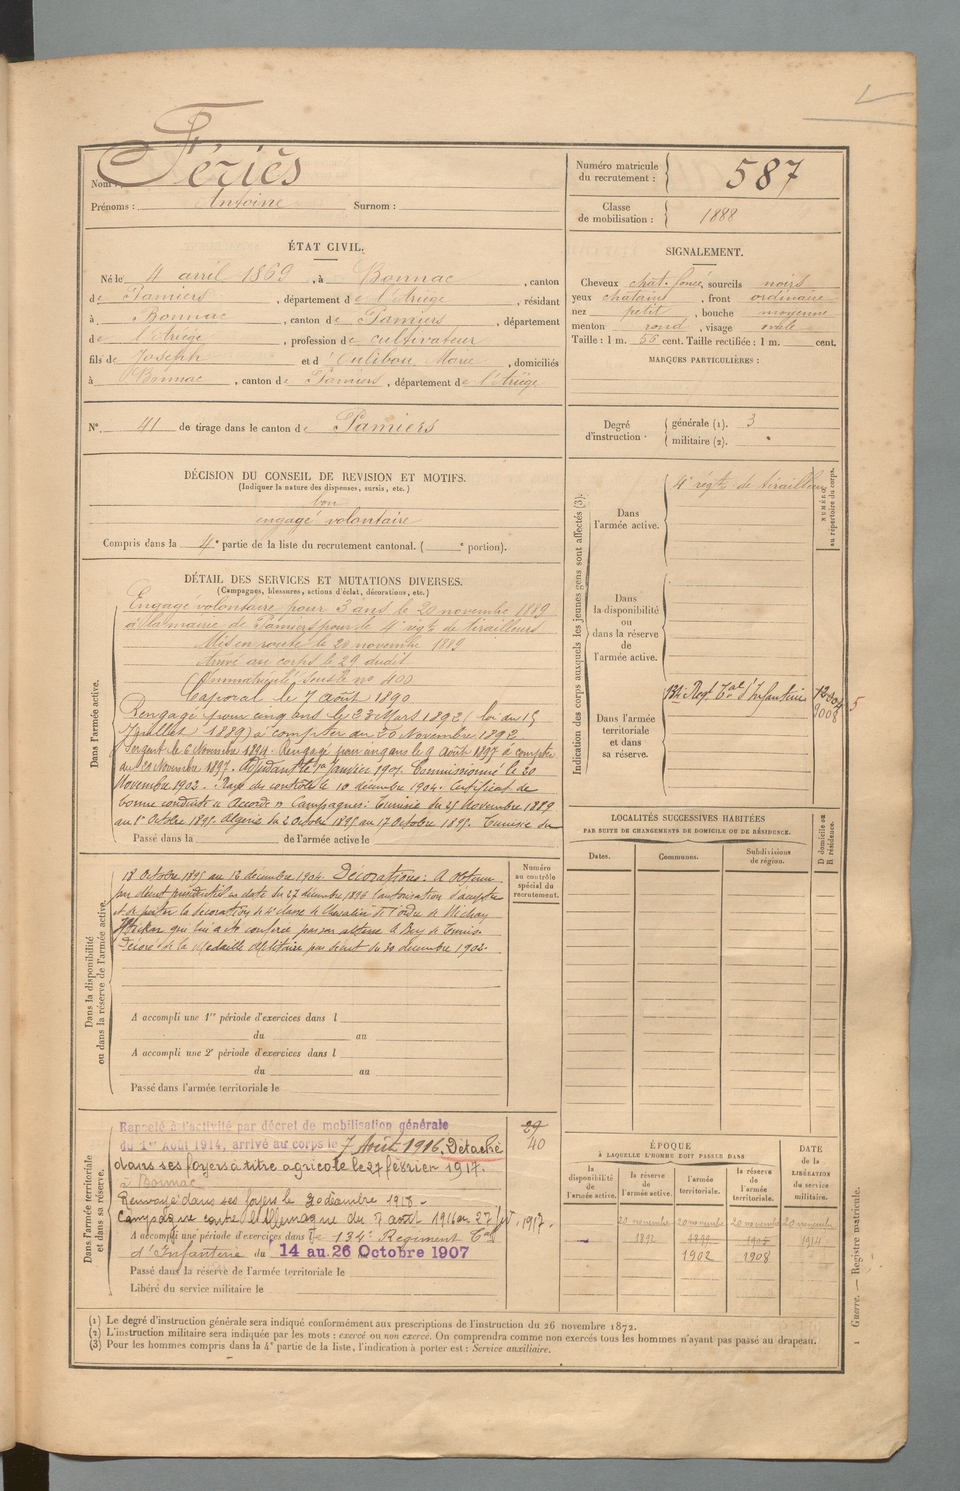 Nom : Fériès
Prénoms : Antoine Surnom :
Numéro matricule du recrutement : 587
Classe de mobilisation : 1888
ÉTAT CIVIL.
Né le 4 avril 1869, à Bonnac, canton
de Pamiers, département de l'Ariège, résidant
à Bonnac, canton de Pamiers, département
de l'Ariège, profession de cultivateur
fils de Joseph et d' Marie, domiciliés
à Bonnac, canton de Pamiers, département de l'Ariège
N° 41 de tirage dans le canton de Pamiers
SIGNALEMENT.
Cheveux chat. foncé, sourcils noirs
yeux chatains, front ordinaire
nez petit, bouche moyenne
menton rond, visage ovale
Taille : 1 m. 55 cent. Taille rectifiée : 1 m. cent.
MARQUES PARTICULIÈRES :
Degré d'instruction. générale (1). 3
militaire (2).
DÉCISION DU CONSEIL DE REVISION ET MOTIFS.
(Indiquer la nature des dispenses, sursis, etc.)
bon
engagé volontaire
Compris dans la 4e partie de la liste du recrutement cantonal. ( e portion).
DÉTAIL DES SERVICES ET MUTATIONS DIVERSES.
(Campagnes, blessures, actions d'éclat, décorations, etc.)
Dans l'armée active.
Engagé volontaire pour 3 ans le 20 novembre 1889
à la mairie de Pamiers pour le 4e régt de tirailleurs
Mis en route le 20 novembre 1889
Arrivé au corps le 29 dudit
Immatriculé sous le no 400
Caporal le 7 août 1890
Rengagé pour cinq ans le 23 Mars 1892 (loi du 15
Juillet 1889) à compter du 20 Novembre 1892
Sergent le 6 Novembre 1894. Rengagé pour ans le 9 Août 1897 à compter
du 20 Novembre 1897. Adjudant le 1er Janvier 1901. Commissionné le 20
Novembre 1902. Rayé des contrôles le 10 décembre 1904. Certificat de
bonne conduite "Accordé" Campagnes : Tunisie du 25 Novembre 1889
au 1er Octobre 1895. Algérie du 2 Octobre 1895 au 17 Octobre 1895. Tunisie du
Passé dans la de l'armée active le
Dans la disponibilité ou dans la réserve de l'armée active.
18 Octobre 1895 au 12 décembre 1904. Décorations : A obtenu
par décret présidentiel en date du 27 décembre 1896 l'autorisation d'accepter
et de porter la décoration de classe de Chevalier de l'ordre du Nichan
Iftickar qui lui a été conférée par son altesse le Bey de Tunis.
Décoré de la Médaille Militaire par décret du 30 décembre 1902.
A accompli une 1re période d'exercices dans l
du au
A accompli une 2e période d'exercices dans l
du au
Passé dans l'armée territoriale le
Numéro au contrôle spécial du recrutement.
Dans l'armée territoriale et dans sa réserve.
Rappelé à l'activité par décret de mobilisation générale
du 1er Août 1914, arrivé au corps le 7 Août 1916. Détaché
dans ses foyers à titre agricole le 27 février 1917.
à Bonnac
Renvoyé dans ses foyers le décembre 1918.
Campagne contre l'Allemagne du 7 août 1916 au 27 fév. 1917.
A accompli une période d'exercices dans le 134e Régiment Tal
d'Infanterie du 14 au 26 Octobre 1907
Passé dans la réserve de l'armée territoriale le
Libéré du service militaire le
29
40
Indication des corps auxquels les jeunes gens sont affectés (3).
NUMÉRO au répertoire du corps.
Dans l'armée active.
4e régt de tirailleurs
Dans la disponibilité ou dans la réserve de l'armée active.
Dans l'armée territoriale et dans sa réserve.
134e Régt Tal d'Infanterie
5
LOCALITÉS SUCCESSIVES HABITÉES
PAR SUITE DE CHANGEMENTS DE DOMICILE OU DE RÉSIDENCE.
Dates. Communes. Subdivisions de région.
D domicile ou R résidence.
ÉPOQUE
À LAQUELLE L'HOMME DOIT PASSER DANS
la disponibilité de l'armée active.
la réserve de l'armée active.
l'armée territoriale.
la réserve de l'armée territoriale.
DATE de la LIBÉRATION du service militaire.
20 novembre 20 novembre 20 novembre 20 novembre
1892 1899 1905 1914
1902 1908
(1) Le degré d'instruction générale sera indiqué conformément aux prescriptions de l'instruction du 26 novembre 1872.
(2) L'instruction militaire sera indiquée par les mots : exercé ou non exercé. On comprendra comme non exercés tous les hommes n'ayant pas passé au drapeau.
(3) Pour les hommes compris dans la 4e partie de la liste, l'indication à porter est : Service auxiliaire.
1 Guerre. — Registre matricule.